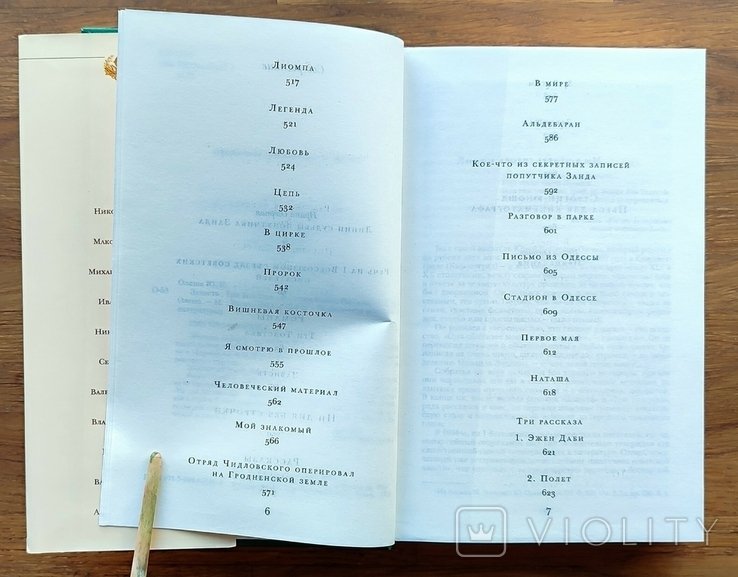 Нико
Макс
Михаи
Ива
Ник
Се
Вале
Влад
Ва
А
Лиомпа
517
Легенда
521
Любовь
524
Цепь
532
В цирке
538
Пророк
542
Вишневая косточка
547
Я смотрю в прошлое
555
Человеческий материал
562
Мой знакомый
566
Отряд Чидловского оперировал
на Гродненской земле
571
6
В мире
577
Альдебаран
586
Кое-что из секретных записей
попутчика Занда
592
Разговор в парке
601
Письмо из Одессы
605
Стадион в Одессе
609
Первое мая
612
Наташа
618
Три рассказа
1. Эжен Даби
621
2. Полет
623
7
VIOLITY